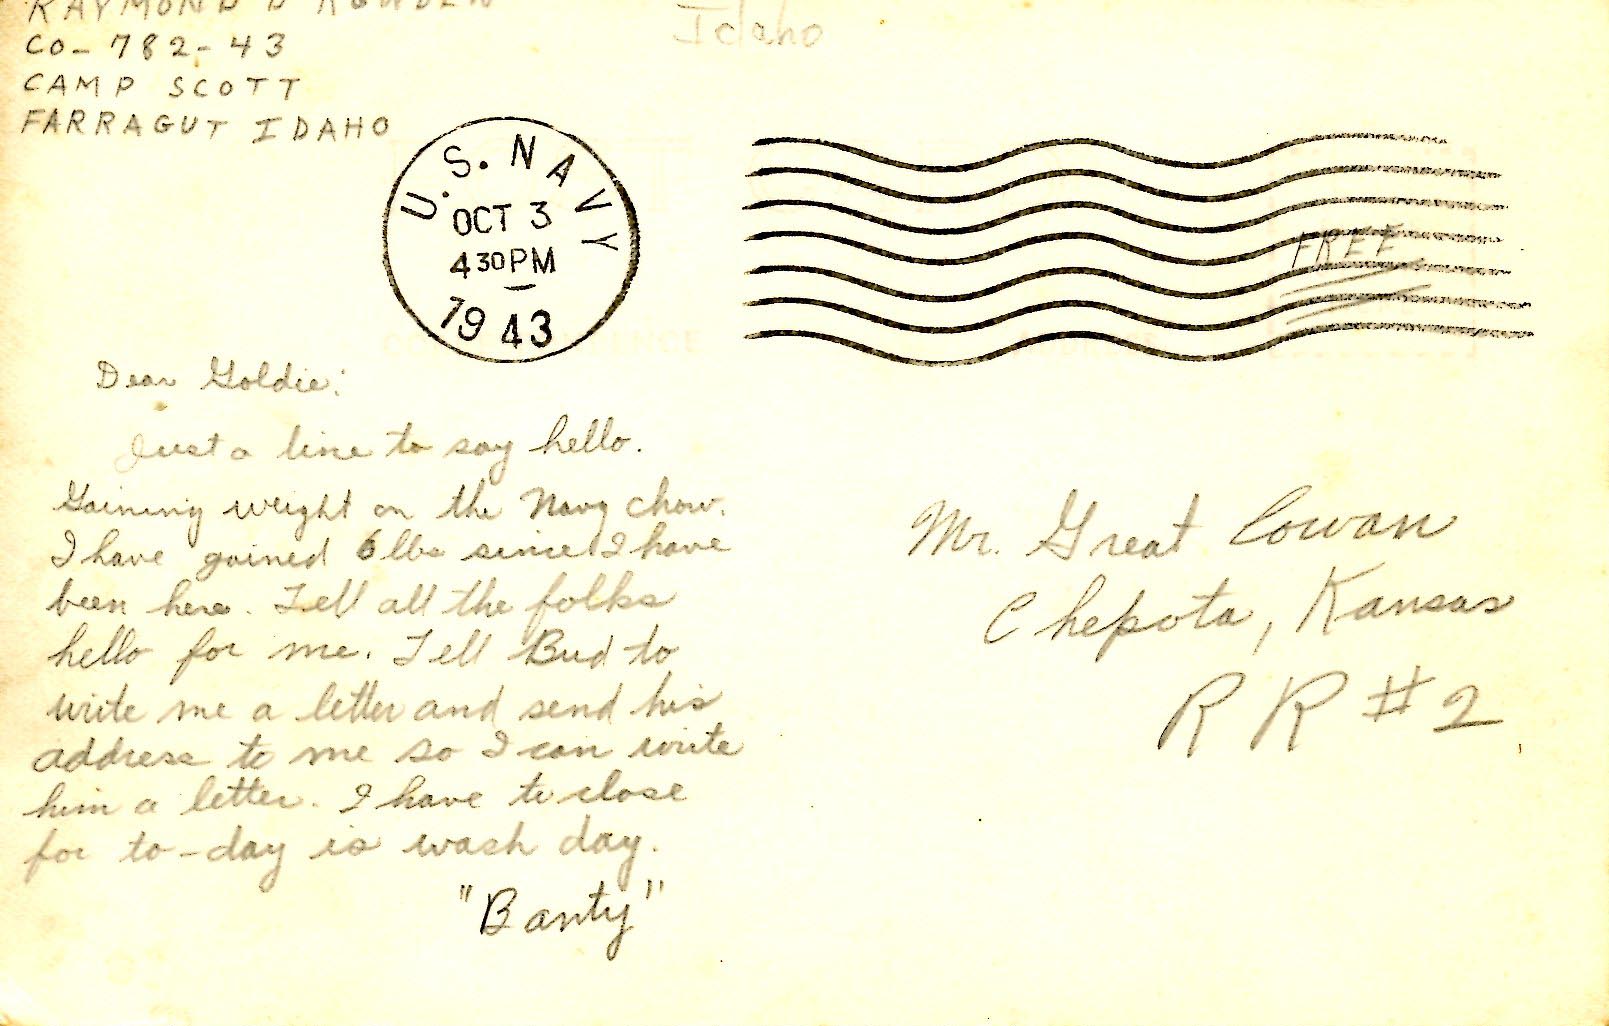 RAYMOND D ROWDEN
CO- 782-43
CAMP SCOTT
FARRAGUT IDAHO
Idaho
U.S. NAVY
OCT 3
430PM
1943
FREE
Dear Goldie:
Just a line to say hello.
Gaining weight on the Navy chow.
I have gained 6 lbs since I have
been here. Tell all the folks
hello for me. Tell Bud to
write me a letter and send his
address to me so I can write
him a letter. I have to close
for to-day is wash day.
"Banty"
Mr. Great Cowan
Chepota, Kansas
R R #2